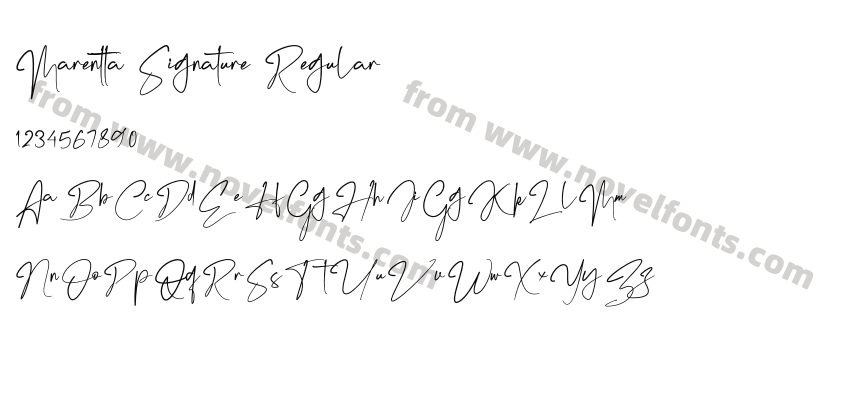 Marentta Signature Regular
1234567890
Aa Bb Cc Dd Ee Ff Gg Hh Ii Gg Kk Ll Mm
Nn Oo Pp Qq Rr Ss Tt Uu Vv Ww Xx Yy Zz
from www.novelfonts.com
from www.novelfonts.com